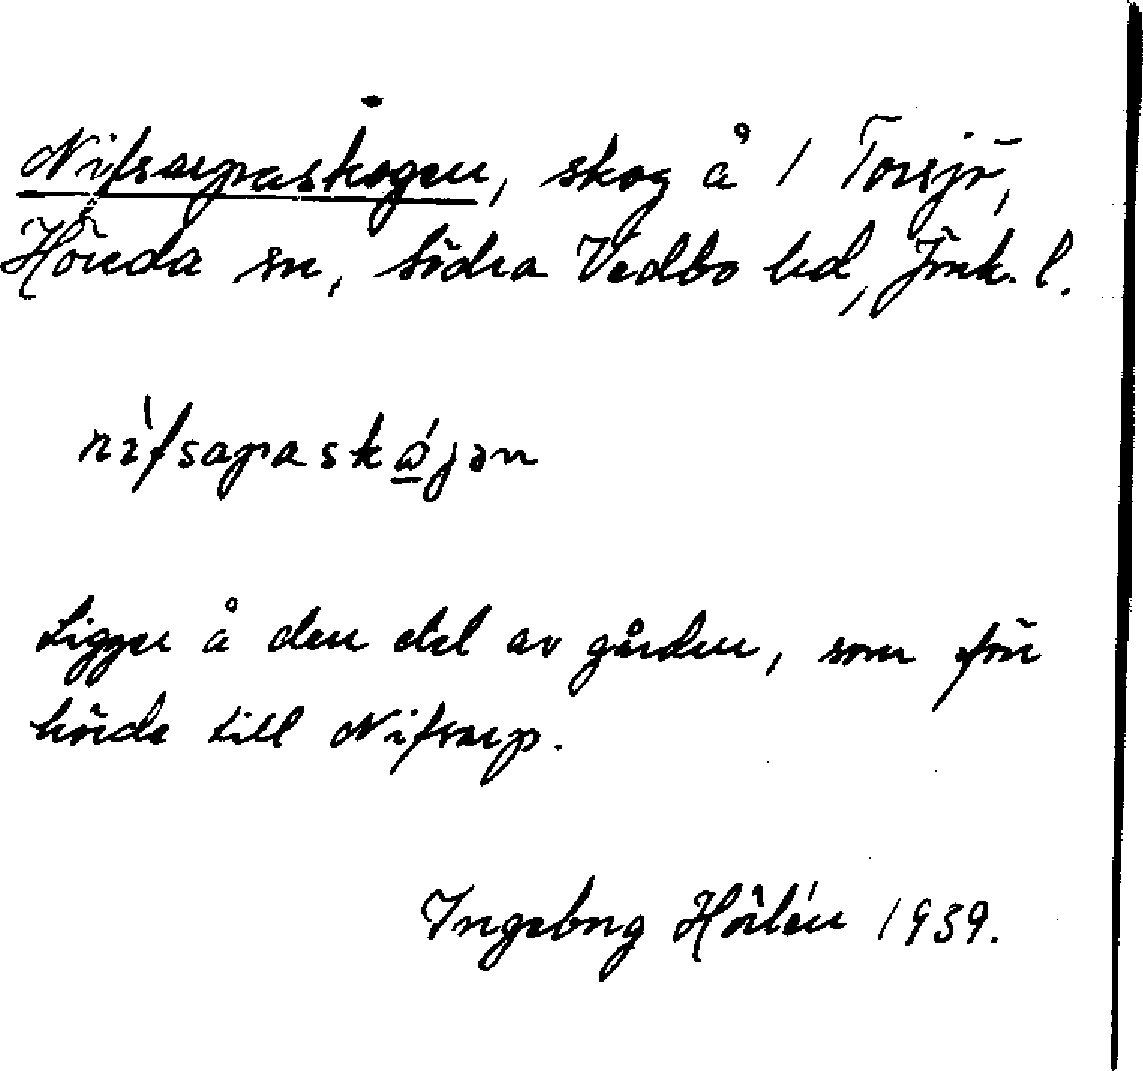 Nifsarpaskogen, skog å 1 Torsjö,
Hörida sn, Södra Vedbo hd, Jönk. l.
nifsapaskøjən
Ligger å den del av gården, som förr
hörde till Nifsarp.
Ingeborg Hörlén 1939.